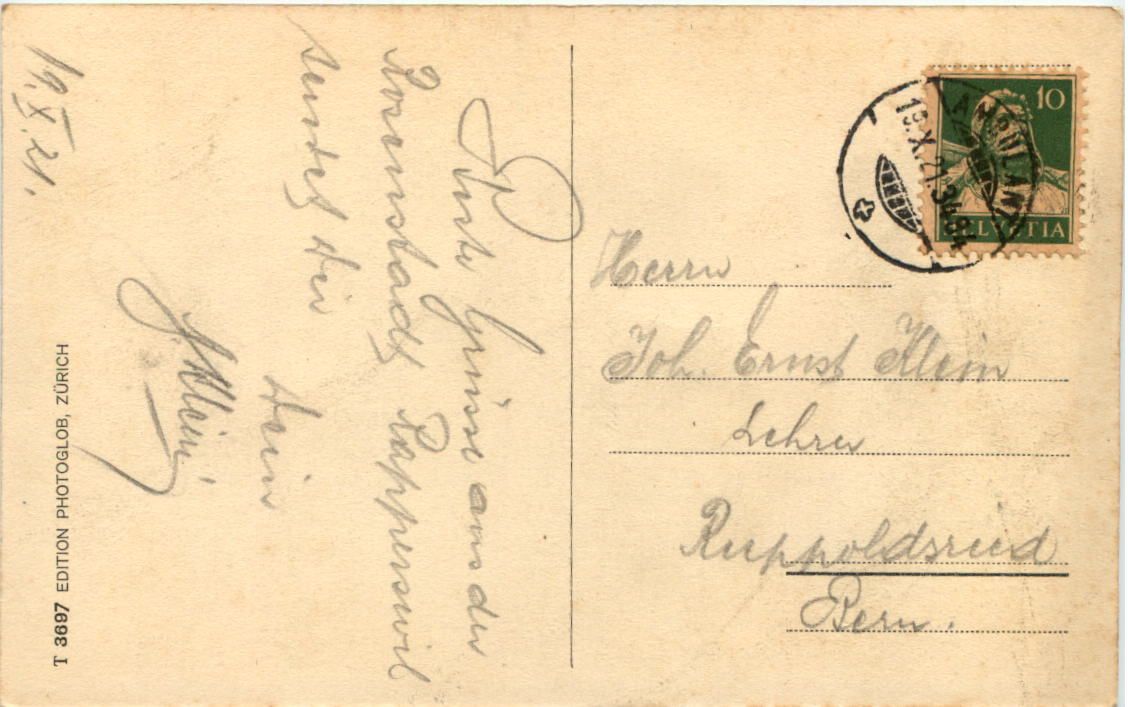 19.X.21.
Beste Grüsse aus der
Rosenstadt Rapperswil
sendet dir
dein
Klein
Herrn
Joh. Ernst Klein
Lehrer
Ruppoldsried
Bern.
10
HELVETIA
AMBULANT
19.X.21
T 3697 EDITION PHOTOGLOB, ZÜRICH